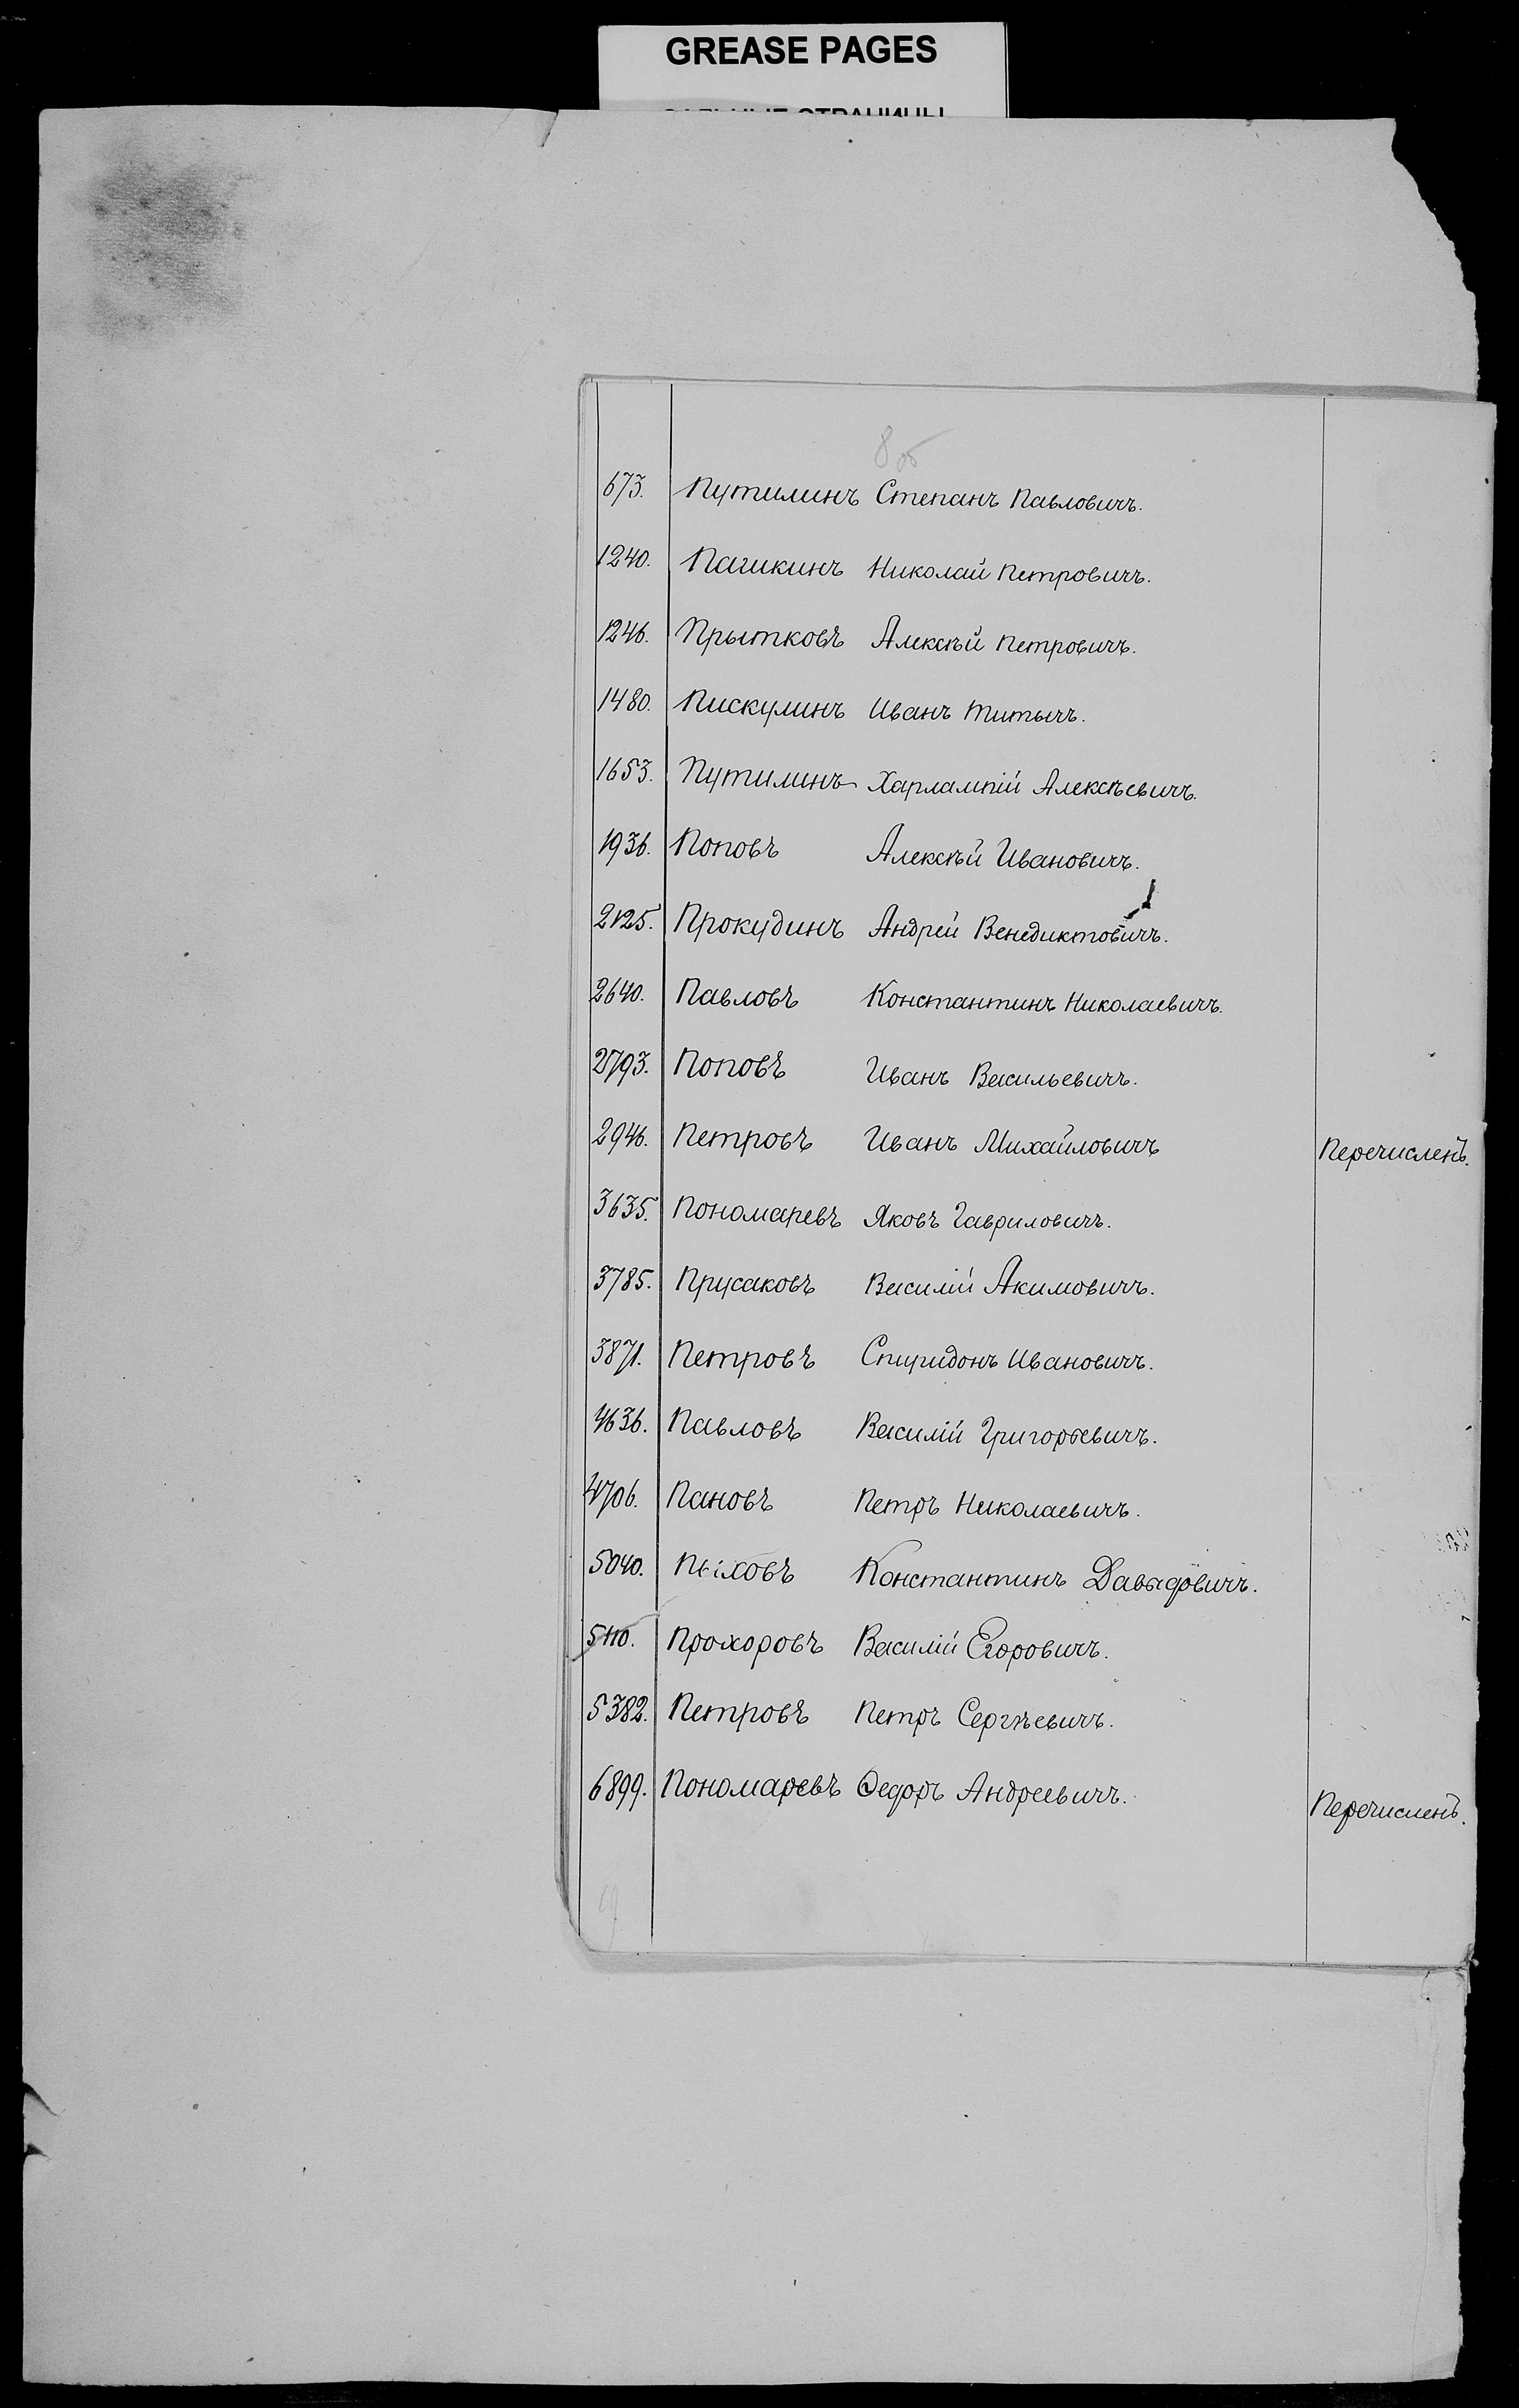 GREASE PAGES
8 об
673. Путилинъ Степанъ Павловичъ.
1240. Пашкинъ Николай Петровичъ.
1246. Прытковъ Алексѣй Петровичъ.
1480. Пискулинъ Иванъ Титычъ.
1653. Путилинъ Харлампій Алексѣевичъ.
1936. Поповъ Алексѣй Ивановичъ.
2125. Прокудинъ Андрей Венедиктовичъ.
2640. Павловъ Константинъ Николаевичъ.
2793. Поповъ Иванъ Васильевичъ.
2946. Петровъ Иванъ Михайловичъ Перечисленъ.
3635. Пономаревъ Яковъ Гавриловичъ.
3785. Прусаковъ Василій Акимовичъ.
3871. Петровъ Спиридонъ Ивановичъ.
4636. Павловъ Василій Григорьевичъ.
4706. Пановъ Петръ Николаевичъ.
5040. Пыховъ Константинъ Давыдовичъ.
5110. Прохоровъ Василій Егоровичъ.
5382. Петровъ Петръ Сергѣевичъ.
6899. Пономаревъ Ѳедоръ Андреевичъ. Перечисленъ.